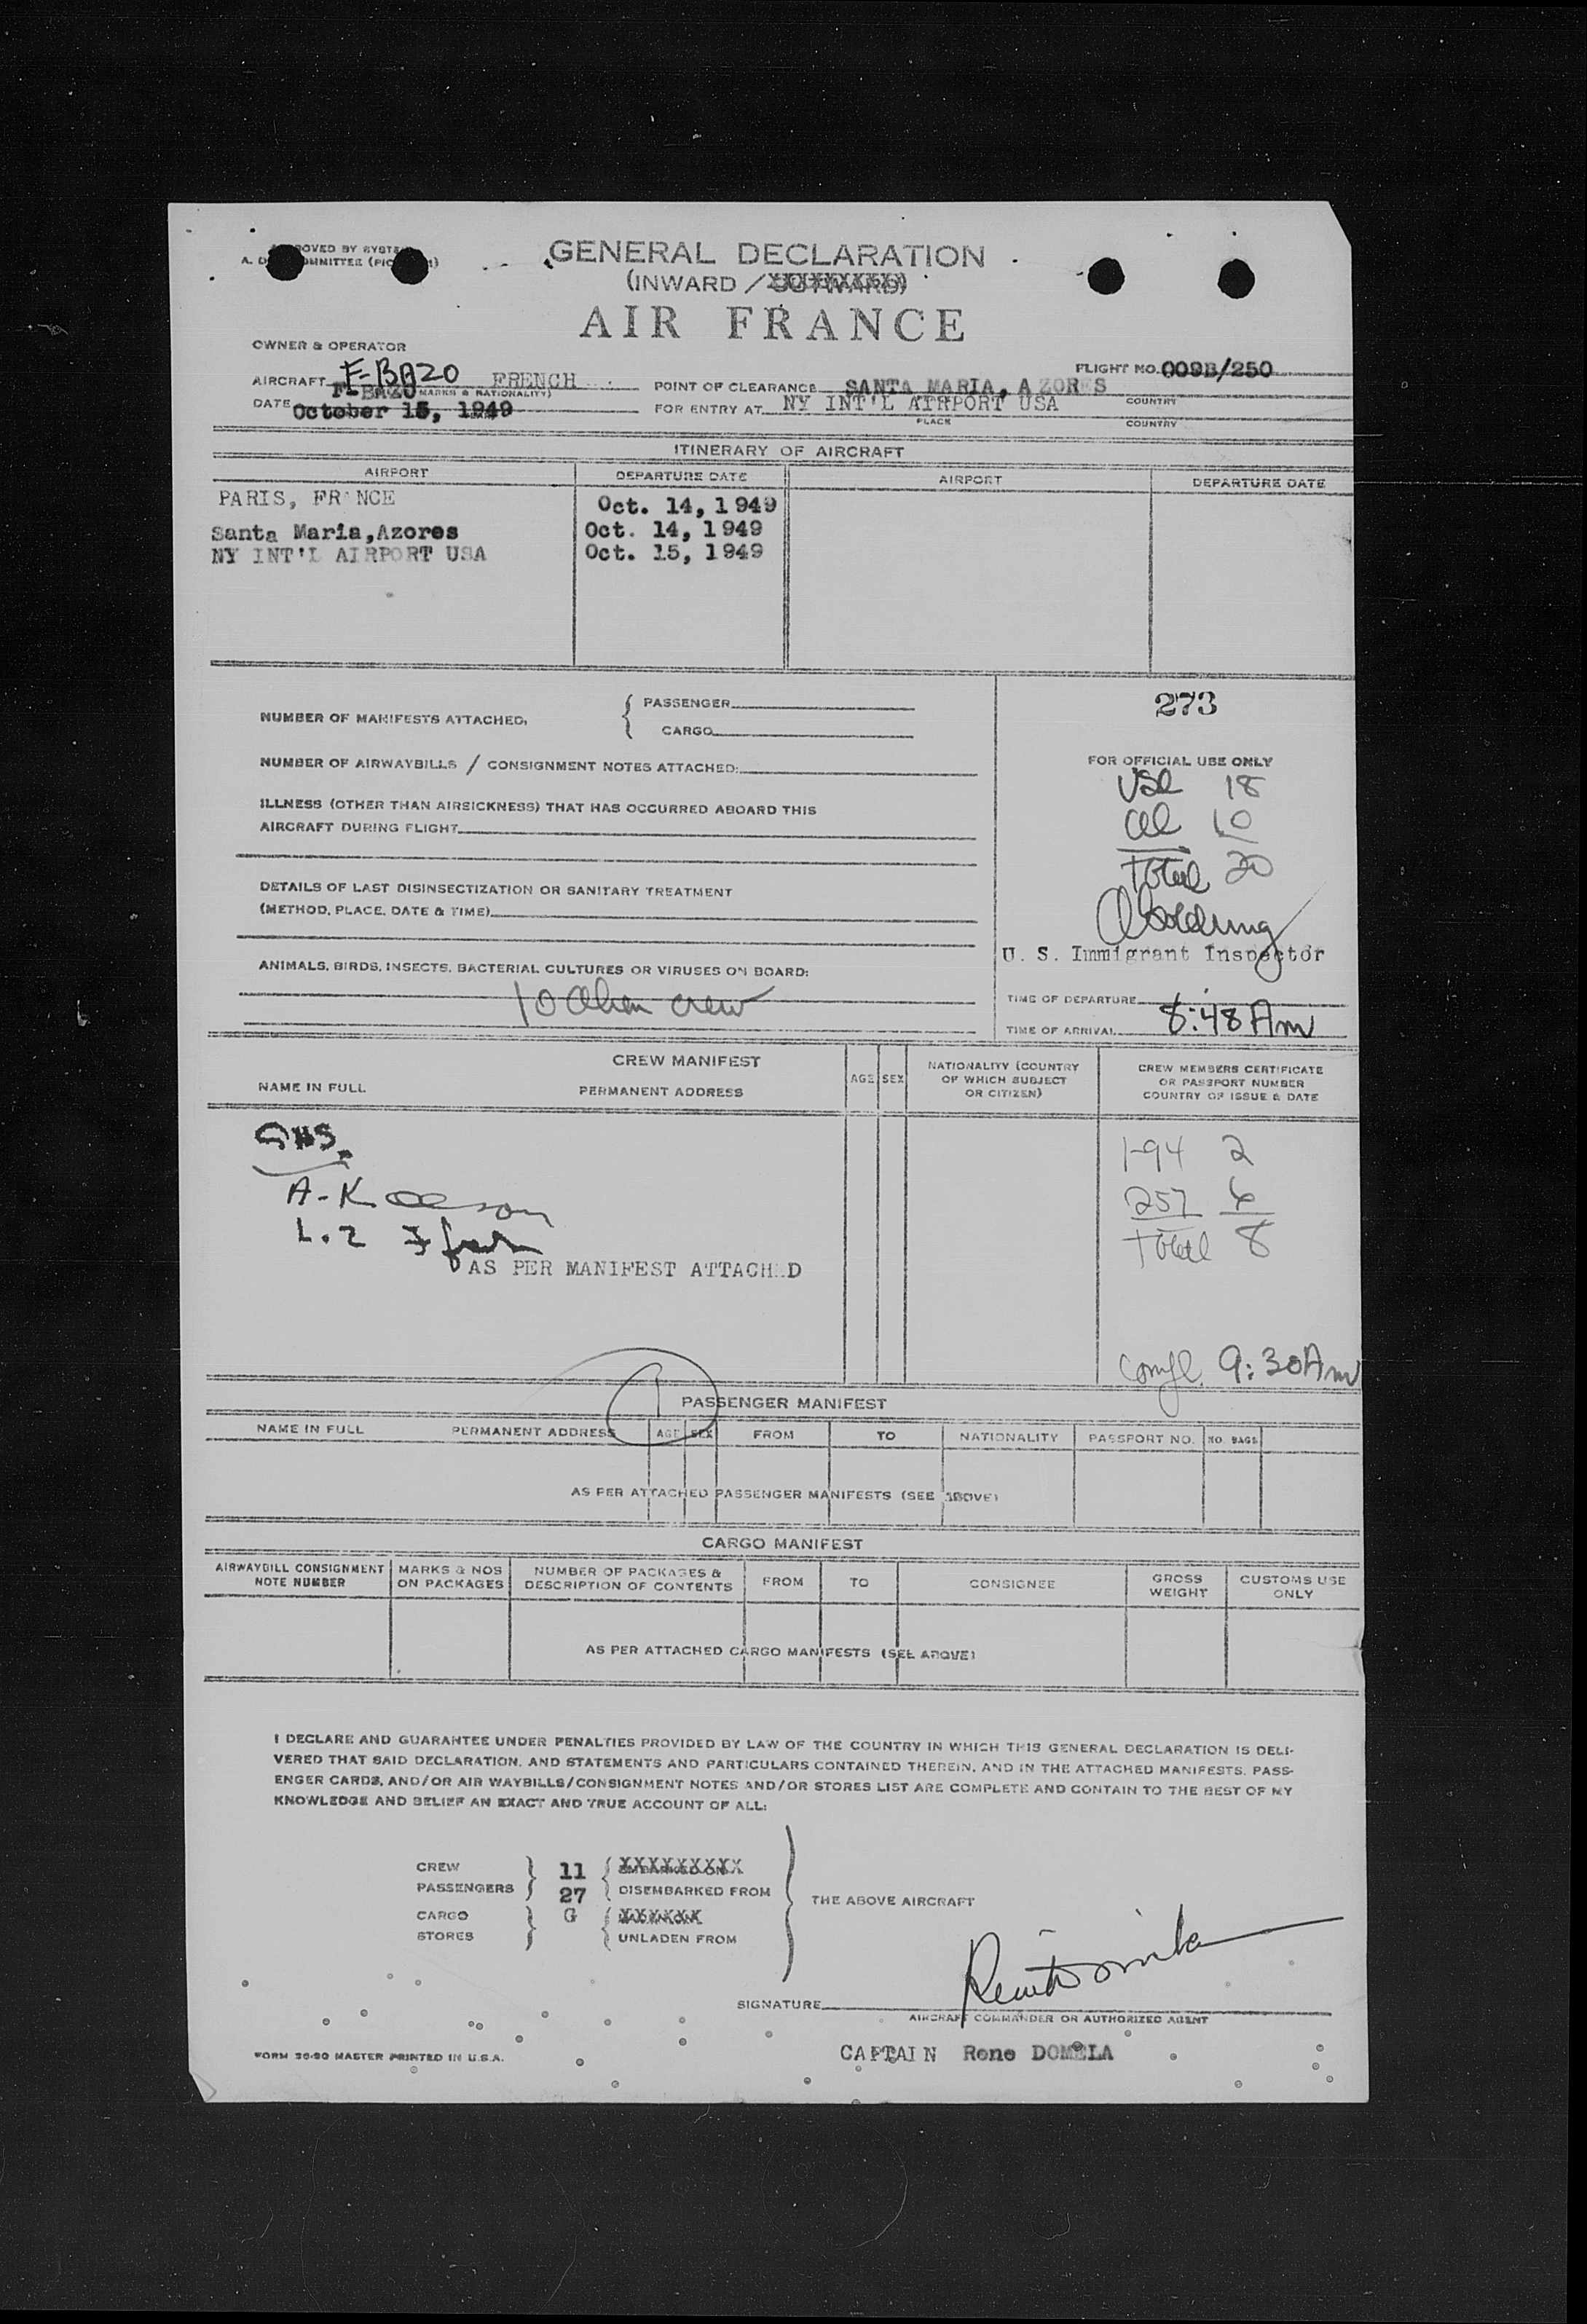 GENERAL DECLARATION
(INWARD /
AIR FRANCE
OWNER & OPERATOR
FLIGHT NO. 009B/250
AIRCRAFT F-BAZO FRENCH
F-BAZO (MARKS & NATIONALITY)
POINT OF CLEARANCE SANTA MARIA, AZORES
COUNTRY
DATE October 15, 1949
FOR ENTRY AT NY INT'L AIRPORT USA
PLACE COUNTRY
ITINERARY OF AIRCRAFT
AIRPORT DEPARTURE DATE AIRPORT DEPARTURE DATE
PARIS, FR NCE Oct. 14, 1949
Santa Maria,Azores Oct. 14, 1949
NY INT'L AIRPORT USA Oct. 15, 1949
273
NUMBER OF MANIFESTS ATTACHED,
PASSENGER
CARGO
NUMBER OF AIRWAYBILLS / CONSIGNMENT NOTES ATTACHED:
ILLNESS (OTHER THAN AIRSICKNESS) THAT HAS OCCURRED ABOARD THIS
AIRCRAFT DURING FLIGHT
DETAILS OF LAST DISINSECTIZATION OR SANITARY TREATMENT
(METHOD, PLACE, DATE & TIME)
ANIMALS, BIRDS, INSECTS, BACTERIAL CULTURES OR VIRUSES ON BOARD:
10 alien crew
FOR OFFICIAL USE ONLY
18
10
Total
U. S. Immigrant Inspector
TIME OF DEPARTURE
TIME OF ARRIVAL 8:48 Am
CREW MANIFEST
NAME IN FULL PERMANENT ADDRESS AGE SEX NATIONALITY (COUNTRY OF WHICH SUBJECT OR CITIZEN) CREW MEMBERS CERTIFICATE OR PASSPORT NUMBER COUNTRY OF ISSUE & DATE
I-94 2
257 6
Total 8
A-K
L-Z
AS PER MANIFEST ATTACH D
Compl. 9:30 Am
PASSENGER MANIFEST
NAME IN FULL PERMANENT ADDRESS AGE SEX FROM TO NATIONALITY PASSPORT NO. NO. BAGS
AS PER ATTACHED PASSENGER MANIFESTS (SEE ABOVE)
CARGO MANIFEST
AIRWAYBILL CONSIGNMENT NOTE NUMBER MARKS & NOS ON PACKAGES NUMBER OF PACKAGES & DESCRIPTION OF CONTENTS FROM TO CONSIGNEE GROSS WEIGHT CUSTOMS USE ONLY
AS PER ATTACHED CARGO MANIFESTS (SEE ABOVE)
I DECLARE AND GUARANTEE UNDER PENALTIES PROVIDED BY LAW OF THE COUNTRY IN WHICH THIS GENERAL DECLARATION IS DELI-
VERED THAT SAID DECLARATION, AND STATEMENTS AND PARTICULARS CONTAINED THEREIN, AND IN THE ATTACHED MANIFESTS, PASS-
ENGER CARDS, AND/OR AIR WAYBILLS/CONSIGNMENT NOTES AND/OR STORES LIST ARE COMPLETE AND CONTAIN TO THE BEST OF MY
KNOWLEDGE AND BELIEF AN EXACT AND TRUE ACCOUNT OF ALL:
CREW 11
PASSENGERS 27 DISEMBARKED FROM
THE ABOVE AIRCRAFT
CARGO G
STORES UNLADEN FROM
SIGNATURE
AIRCRAFT COMMANDER OR AUTHORIZED AGENT
FORM 30-90 MASTER PRINTED IN U.S.A.
CAPTAIN Rene DOMELA